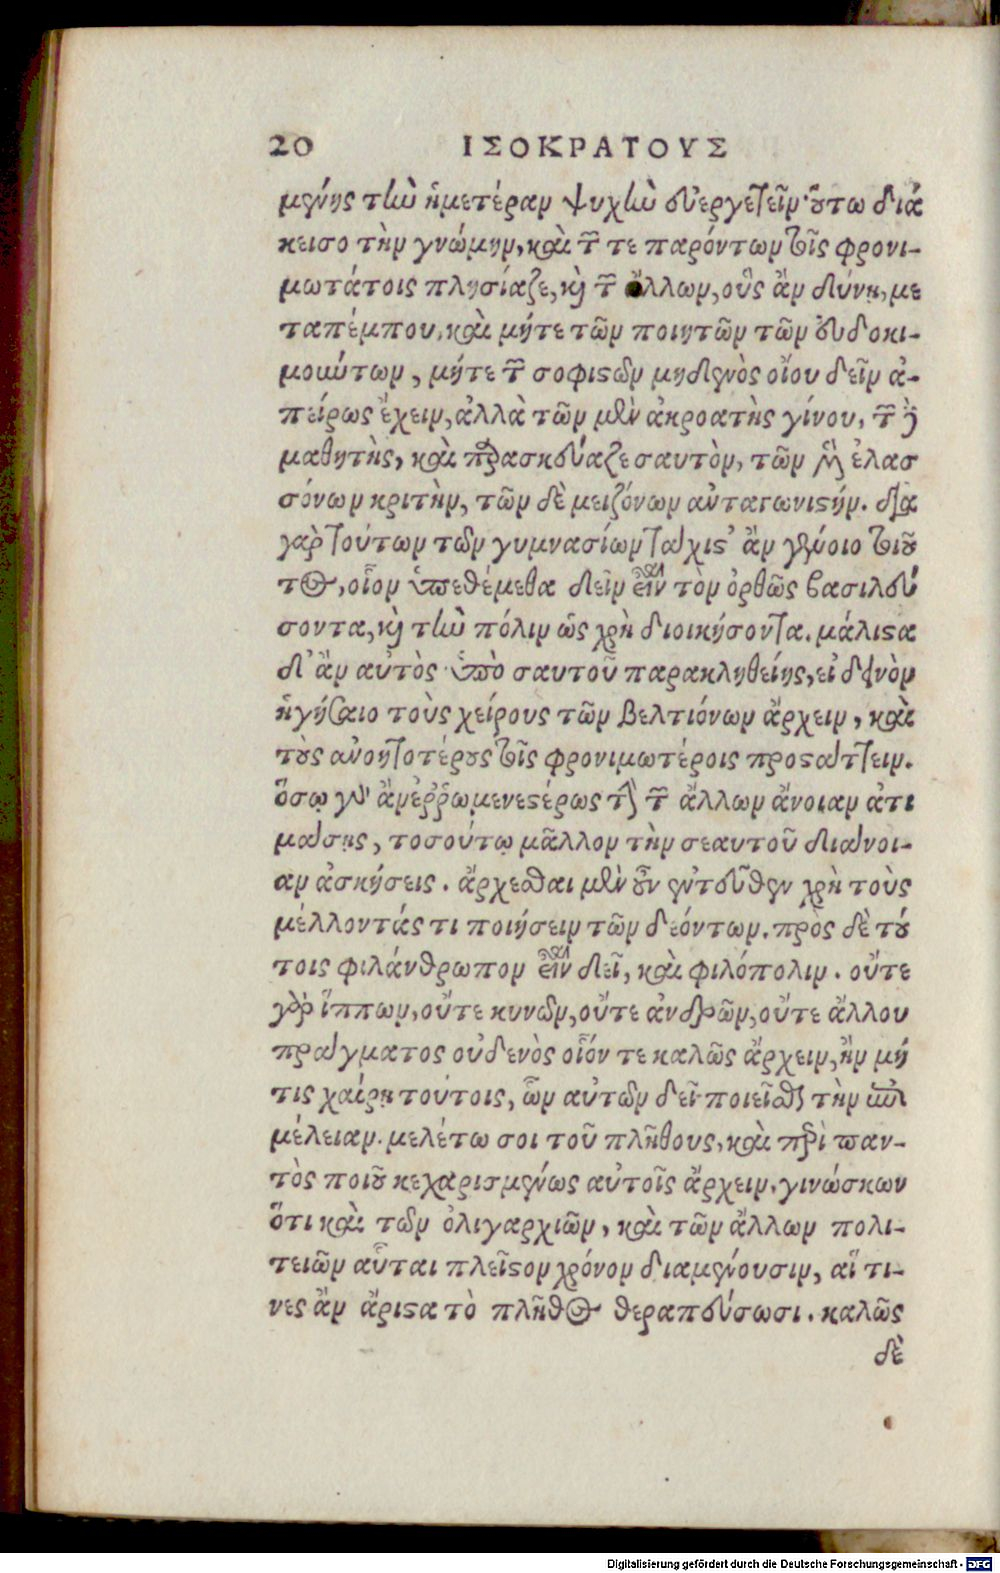 20 ΙΣΟΚΡΑΤΟΥΣ
μένης τὴν ἡμετέραν ψυχὴν εὐεργετεῖν· οὕτω διά
κεισο τὴν γνώμην, καὶ τῶν τε παρόντων τοῖς φρονι-
μωτάτοις πλησίαζε, καὶ τῶν ἄλλων, οὓς ἂν δύνῃ, με
ταπέμπου, καὶ μήτε τῶν ποιητῶν τῶν εὐδοκι-
μούντων, μήτε τῶν σοφιστῶν μηδενὸς οἴου δεῖν ἀ-
πείρως ἔχειν, ἀλλὰ τῶν μὲν ἀκροατὴς γίνου, τῶν δὲ
μαθητὴς, καὶ παρασκεύαζε σαυτὸν, τῶν μὲν ἐλασ
σόνων κριτὴν, τῶν δὲ μειζόνων ἀνταγωνιστήν. διὰ
γὰρ τούτων τῶν γυμνασίων τάχιστ' ἂν γένοιο τοιοῦ
τος, οἷον ὑπεθέμεθα δεῖν εἶναι τὸν ὀρθῶς βασιλεύ
σοντα, καὶ τὴν πόλιν ὡς χρὴ διοικήσοντα. μάλιστα
δ' ἂν αὐτὸς ὑπὸ σαυτοῦ παρακληθείης, εἰ δεινὸν
ἡγήσαιο τοὺς χείρους τῶν βελτιόνων ἄρχειν, καὶ
τοὺς ἀνοητοτέρους τοῖς φρονιμωτέροις προστάττειν.
ὅσῳ γὰρ ἂν ἐῤῥωμενεστέρως τὴν τῶν ἄλλων ἄνοιαν ἀτι
μάσῃς, τοσούτῳ μᾶλλον τὴν σεαυτοῦ διάνοι-
αν ἀσκήσεις. ἄρχεσθαι μὲν οὖν ἐντεῦθεν χρὴ τοὺς
μέλλοντάς τι ποιήσειν τῶν δεόντων. πρὸς δὲ τού
τοις φιλάνθρωπον εἶναι δεῖ, καὶ φιλόπολιν. οὔτε
γὰρ ἵππων, οὔτε κυνῶν, οὔτε ἀνδρῶν, οὔτε ἄλλου
πράγματος οὐδενὸς οἷόν τε καλῶς ἄρχειν, ἢν μή
τις χαίρῃ τούτοις, ὧν αὐτῶν δεῖ ποιεῖσθαι τὴν ἐπι
μέλειαν. μελέτω σοι τοῦ πλήθους, καὶ περὶ παν-
τὸς ποιοῦ κεχαρισμένως αὐτοῖς ἄρχειν, γινώσκων
ὅτι καὶ τῶν ὀλιγαρχιῶν, καὶ τῶν ἄλλων πολι-
τειῶν αὗται πλεῖστον χρόνον διαμένουσιν, αἵ τι-
νες ἂν ἄριστα τὸ πλῆθος θεραπεύσωσι. καλῶς
δὲ
Digitalisierung gefördert durch die Deutsche Forschungsgemeinschaft - DFG